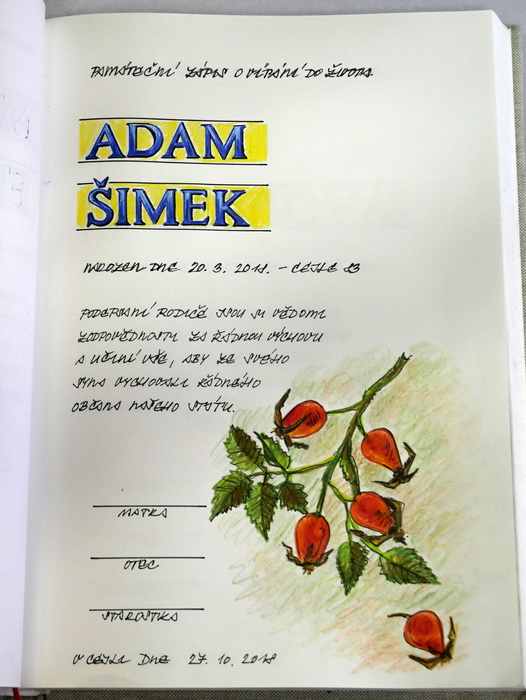 PAMÁTEČNÍ ZÁPIS O VÍTÁNÍ DO ŽIVOTA
ADAM
ŠIMEK
NAROZEN DNE 20. 3. 2018. - CEJLE 83
PODEPSANÍ RODIČE JSOU SI VĚDOMI
ZODPOVĚDNOSTI ZA ŘÁDNOU VÝCHOVU
A UČINÍ VŠE, ABY ZE SVÉHO
SYNA VYCHOVALI ŘÁDNÉHO
OBČANA NAŠEHO STÁTU.
MATKA
OTEC
STAROSTKA
V CEJLI DNE 27. 10. 2018